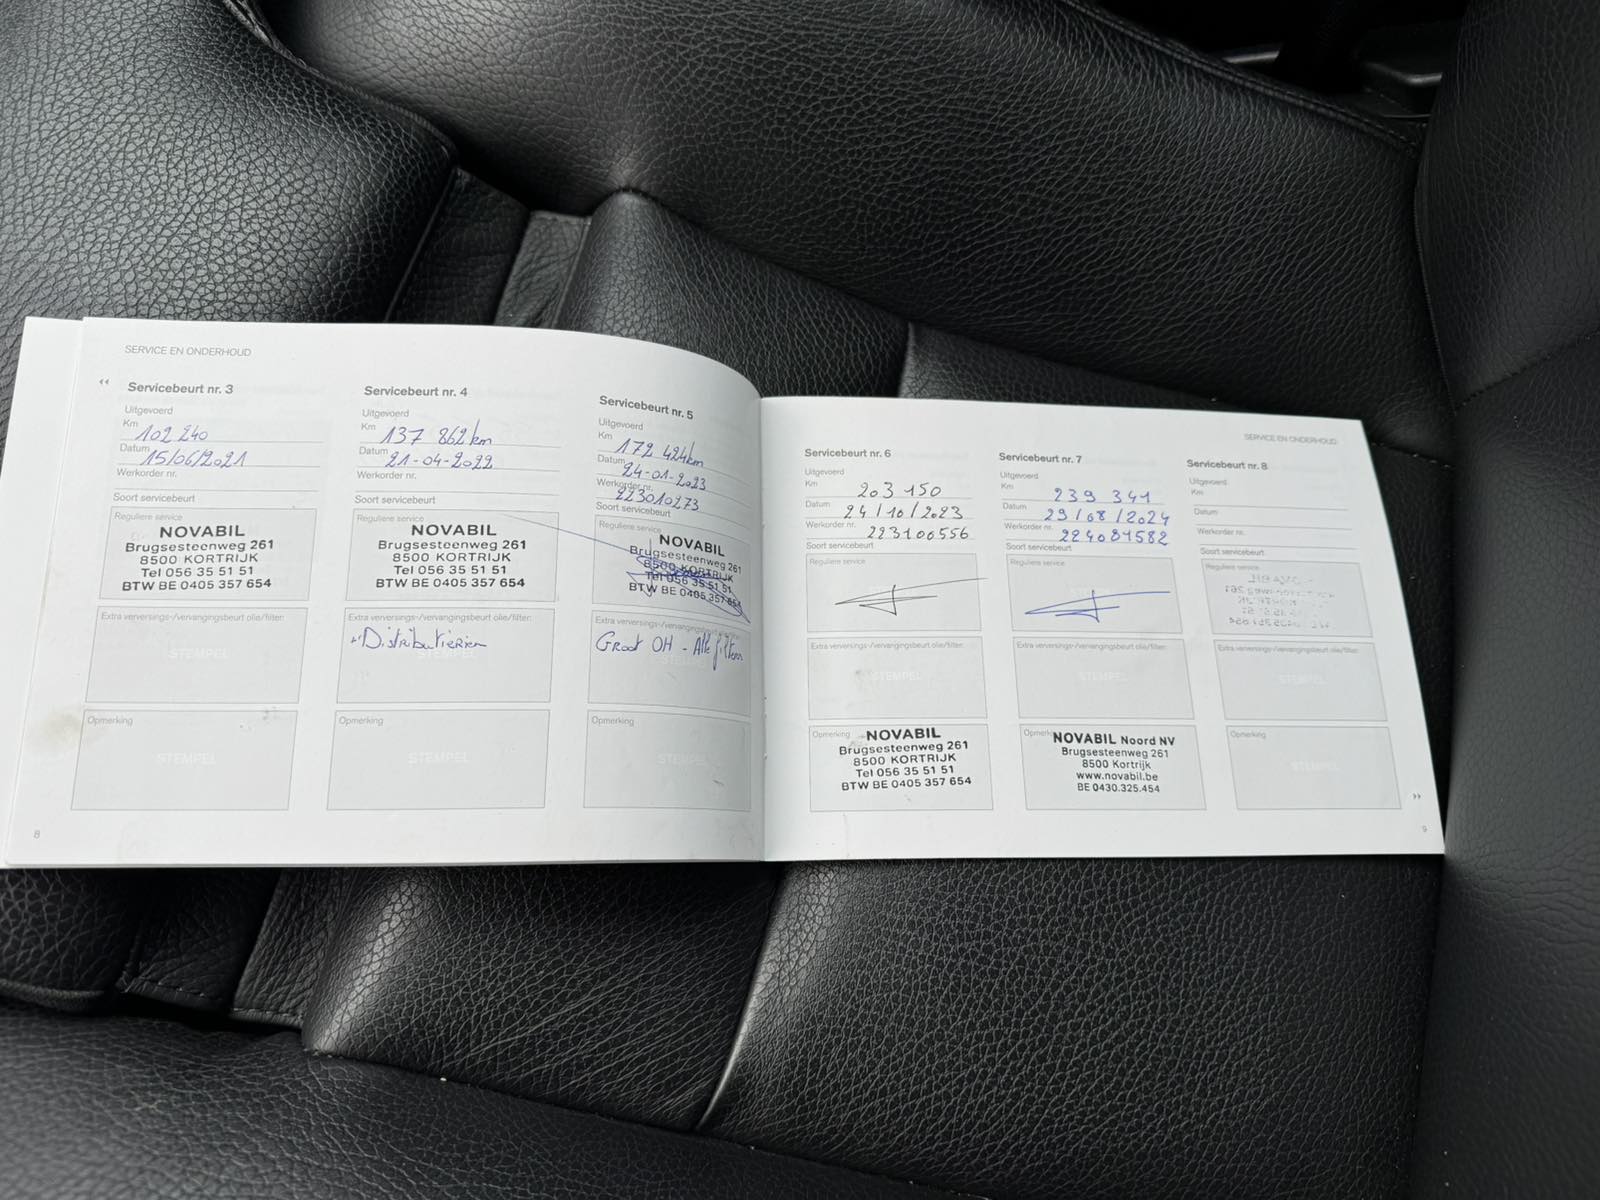 SERVICE EN ONDERHOUD
Servicebeurt nr. 3
Uitgevoerd
Km 102 240
Datum 15/06/2021
Werkorder nr.
Soort servicebeurt
Reguliere service
NOVABIL
Brugsesteenweg 261
8500 KORTRIJK
Tel 056 35 51 51
BTW BE 0405 357 654
Extra verversings-/vervangingsbeurt olie/filter:
STEMPEL
Opmerking
STEMPEL
8
Servicebeurt nr. 4
Uitgevoerd
Km 137 862 km
Datum 21-04-2022
Werkorder nr.
Soort servicebeurt
Reguliere service
NOVABIL
Brugsesteenweg 261
8500 KORTRIJK
Tel 056 35 51 51
BTW BE 0405 357 654
Extra verversings-/vervangingsbeurt olie/filter:
+ Distributieriem
STEMPEL
Opmerking
STEMPEL
Servicebeurt nr. 5
Uitgevoerd
Km 172 424 km
Datum 24-01-2023
Werkorder nr. 223010273
Soort servicebeurt
Reguliere service
NOVABIL
Brugsesteenweg 261
8500 KORTRIJK
Tel 056 35 51 51
BTW BE 0405 357 654
Extra verversings-/vervangingsbeurt olie/filter:
Groot OH - Alle filters
STEMPEL
Opmerking
STEMPEL
SERVICE EN ONDERHOUD
Servicebeurt nr. 6
Uitgevoerd
Km 203 150
Datum 24/10/2023
Werkorder nr. 223100556
Soort servicebeurt
Reguliere service
Extra verversings-/vervangingsbeurt olie/filter:
STEMPEL
Opmerking
NOVABIL
Brugsesteenweg 261
8500 KORTRIJK
Tel 056 35 51 51
BTW BE 0405 357 654
Servicebeurt nr. 7
Uitgevoerd
Km 239 341
Datum 29/08/2024
Werkorder nr. 224081582
Soort servicebeurt
Reguliere service
Extra verversings-/vervangingsbeurt olie/filter:
STEMPEL
Opmerk
NOVABIL Noord NV
Brugsesteenweg 261
8500 Kortrijk
www.novabil.be
BE 0430.325.454
Servicebeurt nr. 8
Uitgevoerd
Km
Datum
Werkorder nr.
Soort servicebeurt
Reguliere service
Extra verversings-/vervangingsbeurt olie/filter:
STEMPEL
Opmerking
STEMPEL
9